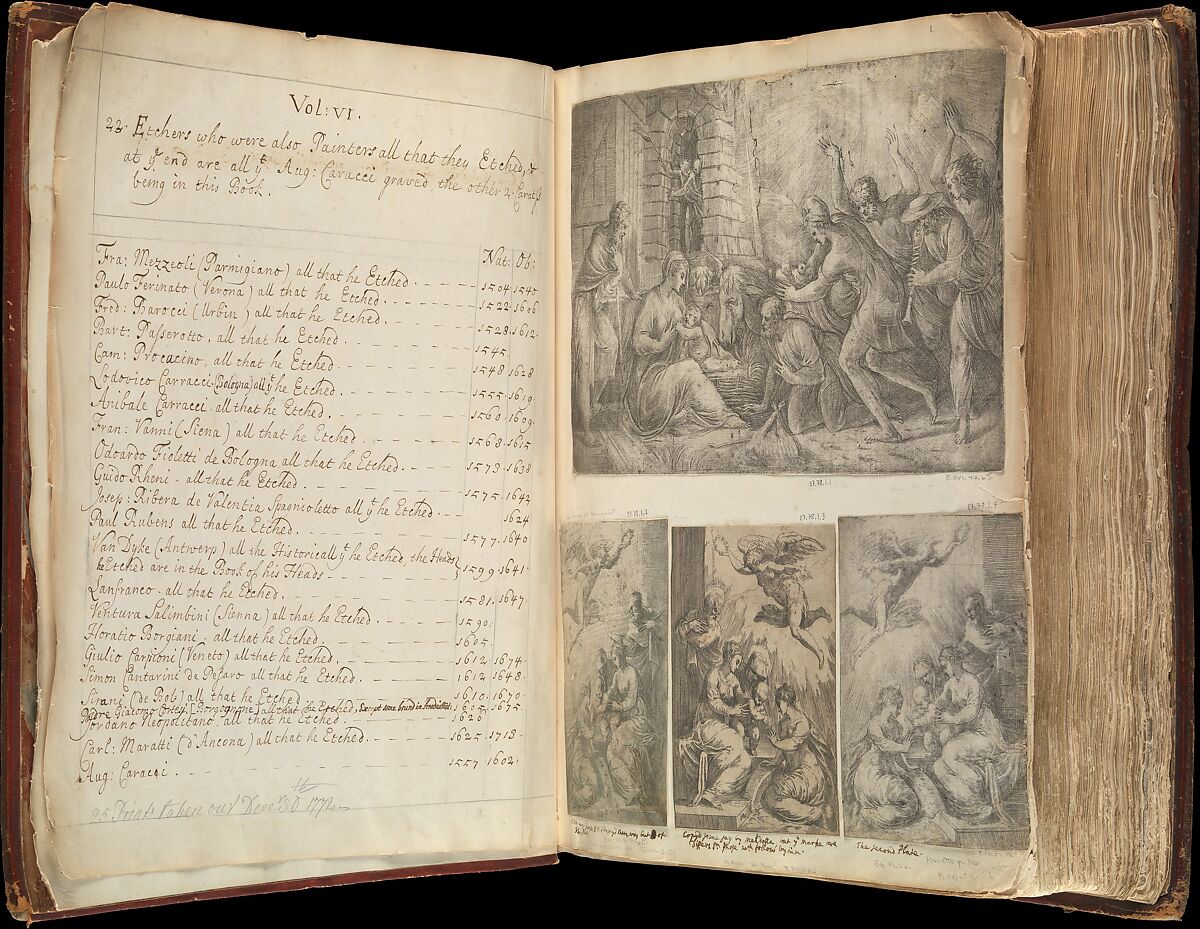 Vol: VI.
22 Etchers who were also Painters all that they Etched, &
at yᵉ end are all yᵗ Aug: Caracci graved the other 2 Carats
being in this Book.
Nat: Ob:
Fra: Mezzeoli (Parmigiano) all that he Etched 1504 1540
Paulo Ferinato (Verona) all that he Etched. 1522 1606
Fred: Barocci (Urbin) all that he Etched. 1528 1612
Bart: Passerotto. all that he Etched. 1545
Cam: Procacino. all that he Etched. 1548 1628
Lodovico Carracci (Bologna) all yᵗ he Etched. 1555 1619
Anibale Carracci. all that he Etched. 1560 1609
Fran: Vanni (Siena) all that he Etched. 1568 1615
Odoardo Fioletti de Bologna all that he Etched. 1573 1638
Guido Rheni. all that he Etched. 1575 1642
Josep: Ribera de Valentia Spagnioletto all yᵗ he Etched. 1624
Paul Rubens all that he Etched. 1577 1640
Van Dyke (Antwerp) all the Historicall yᵗ he Etched, the Heads
he Etched are in the Book of his Heads 1599 1641
Lanfranco. all that he Etched. 1581 1647
Ventura Salimbini (Sienna) all that he Etched. 1590
Horatio Borgiani. all that he Etched. 1605
Giulio Carpioni (Veneto) all that he Etched. 1612 1674
Simon Cantarini de Pesaro all that he Etched. 1612 1648
Sirani (de Bol:) all that he Etched. 1610 1670
Padre Giacomo Cortesi [Borgognone] all that he Etched, Except some bound in 1605 1675
Jordano Neopolitano. all that he Etched. 1626
Carl: Maratti (d'Ancona) all that he Etched. 1625 1713
Aug: Caracci. 1557 1602
25 Prints taken out Decem 30 1772
1
27.78.1.1
27.78.1.3
27.78.1.4
The Second Plate.